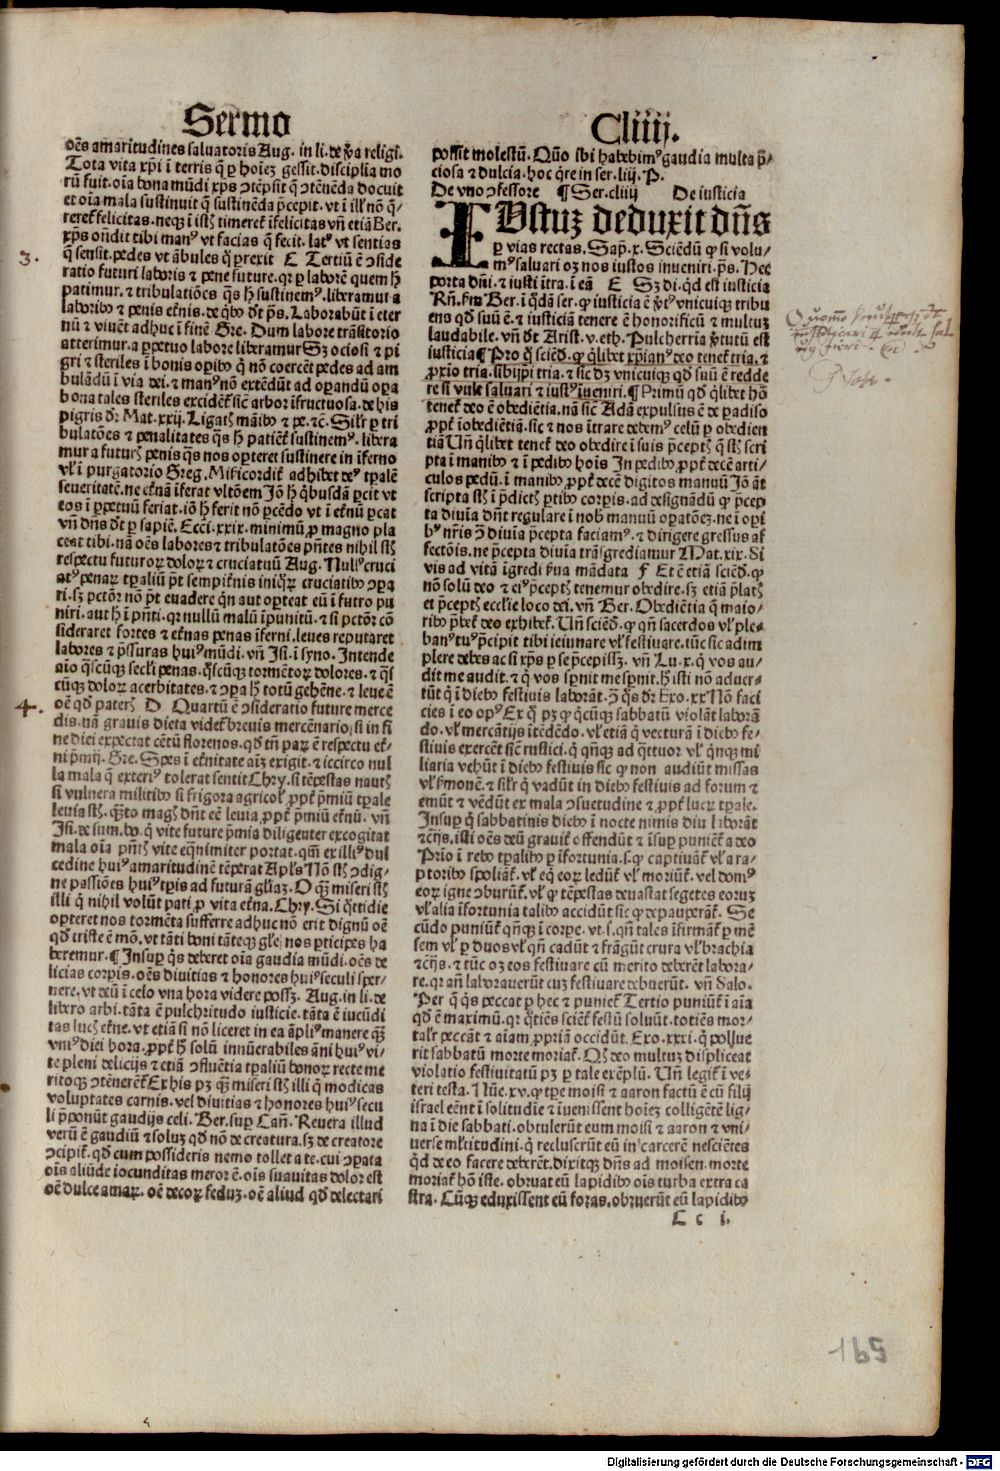 Sermo
oēs amaritudines saluatoris Aug. in li. de ꝟa religi.
Tota vita xp̄i ī terris q̄ ꝑ hoīez gessit. disciplīa mo
rū fuit. oīa bona mūdi xp̄s ↄtēpsit q̄ ↄtēnēda docuit
et oīa mala sustinuit q̄ sustinēda p̄cepit. vt ī ill' nō q̄⸗
rereť felicitas. neqꝫ ī istꝭ timereť īfelicitas vn̄ etiā Ber.
xp̄s on̄dit tibi manꝰ vt facias q̄ fecit. latꝰ vt sentias
3. q̄ sensit. pedes vt ābules q̄ ꝑrexit C Tertiū ē ↄside
ratio futuri laboris ⁊ pene future. qꝛ ꝑ laborē quem h̄
patimur. ⁊ tribulatiōes q̄s h̄ sustinemꝰ. liberamur a
laboribꝰ ⁊ penis eťnis. de q̄bꝰ dr̄ ps̄. Laborabūt ī eter
nū ⁊ viuēt adhuc ī finē Gre. Dum labore trāsitorio
atterimur. a ꝑpetuo labore liberamur Sꝫ ociosi ⁊ pi
gri ⁊ steriles ī bonis oꝑibꝰ q̄ nō coercēt pedes ad am
bulādū ī via dei. ⁊ manꝰ nō extēdūt ad oꝑandū oꝑa
bona tales steriles excidēť sic̄ arbor īfructuosa. de his
pigris dr̄ Mat. xxij. Ligatꝭ māibꝰ ⁊ pe. ⁊c. Silr̄ ꝑ tri
bulatōes ⁊ penalitates q̄s h̄ patiēť sustinemꝰ. libera
mur a futurꝭ penis q̄s nos oꝑteret sustinere in īferno
vl' ī purgatorio Greg. Mis̄icordit̄ adhibet deꝰ tꝑalē
seueritatē. ne eťnā īferat vltōem Jō h̄ q̄busdā ꝑcit vt
eos ī ꝑpetuū feriat. iō h̄ ferit nō ꝑcēdo vt ī eťnū ꝑcat
vn̄ dn̄s dt̄ ꝑ sapiē. Ecci. xxix. minimū ꝓ magno pla
ceat tibi. nā oēs labores ⁊ tribulatōes pn̄tes nihil sꝭ
respectu futuroꝝ doloꝝ ⁊ cruciatuū Aug. Nullꝰ cruci
atꝰ penaꝝ tꝑaliū pt̄ sempiťnis iniq̄ꝝ cruciatibꝰ ↄꝑa
ri. sꝫ pctōr nō pt̄ euadere q̄n aut oꝑteat eū ī futro pu
niri. aut h̄ ī pn̄ti. qꝛ nullū malū īpunitū. ⁊ si pctōr cō
sideraret fortes ⁊ eťnas penas īferni. leues reputaret
labores ⁊ p̄ssuras huiꝰ mūdi. vn̄ Jsi. ī syno. Intende
aīo q̄scūqꝫ secli penas. q̄scūqꝫ tormētoꝝ dolores. ⁊ q̄s
cūqꝫ doloꝝ acerbitates. ⁊ ↄꝑa h̄ totū gehēne. ⁊ leue ē
4. oē qd̄ paterꝭ D Quartū ē ↄsideratio future merce
dis. nā grauis dieta videť breuis mercēnario, si in fi
ne diei expectat cētū florenos. qd̄ tn̄ paꝝ ē respectu eť⸗
ni p̄mij. Gre. Spes ī eťnitate aīꝫ exigit. ⁊ iccirco nul
la mala q̄ exteriꝰ tolerat sentit Chry. si tēpestas nautꝭ
si vulnera militibꝰ si frigora agricol' ꝓpť p̄miū tꝑale
leuia sꝭ. q̄ꝫto magꝭ dn̄t eē leuia, ꝓpť p̄miū eťnū. vn̄
Jsi. de sum. bo. q̄ vite future p̄mia diligenter excogitat
mala oīa pn̄tꝭ vite eq̄nimiter portat. qm̄ ex illiꝰ dul
cedine huiꝰ amaritudinē tēꝑat Apl's Nō sꝭ ↄdig⸗
ne passiōes huiꝰ tꝑis ad futurā gl'iaꝫ. O q̄ꝫ miseri sꝭ
illi q̄ nihil volūt pati ꝓ vita eťna. Chry. Si q̄ttidie
oꝑteret nos tormēta sufferre adhuc nō erit dignū oē
qd̄ triste ē mō. vt tāti boni tāteqꝫ gl'e nos ꝑticipes ha
beremur. ¶ Insuꝑ q̄s deberet oīa gaudia mūdi. oēs de
licias corꝑis. oēs diuitias ⁊ honores huiꝰ seculi sper⸗
nere. vt deū ī celo vna hora videre possꝫ. Aug. in li. de
libero arbi. tāta ē pulchritudo iusticie. tāta ē iucūdi
tas lucꝭ eťne. vt etiā si nō liceret in ea āpliꝰ manere q̄ꝫ
vniꝰ diei hora. ꝓpť h̄ solū innūerabiles āni huiꝰ vi⸗
te pleni delicijs ⁊ etiā ↄfluētia tꝑaliū bonoꝝ recte me
ritoqꝫ ↄtēnereť Ex his pꝫ q̄ꝫ miseri sꝭ illi q̄ modicas
voluptates carnis. vel diuitias ⁊ honores huiꝰ secu
li p̄ponūt gaudijs celi. Ber. suꝑ Can̄. Reuera illud
verū ē gaudiū ⁊ soluꝫ qd̄ nō de creatura. sꝫ de creatore
ↄcipiť. qd̄ cum possideris nemo tollet a te. cui ↄꝑata
oīs aliūde iocunditas meror ē. oīs suauitas dolor est
oē dulce amaꝝ. oē decoꝝ feduꝫ. oē aliud qd̄ delectari
Cliiij.
possit molestū. Qūo ibi habebimꝰ gaudia multa p̄⸗
ciosa ⁊ dulcia. hoc q̄re in ser. liij. P.
De vno ↄfessore ¶ Ser. cliiij De iusticia
IVstuꝫ deduxit dn̄s
ꝑ vias rectas. Sap̄. x. Sciēdū ꝙ si volu⸗
mꝰ saluari oꝫ nos iustos inueniri. ps̄. Hec
porta dn̄i. ⁊ iusti ītra. ī eā E Sꝫ di. qd̄ est iusticia
Rn̄. fm̄ Ber. ī q̄dā ser. ꝙ iusticia ē ꝟtꝰ vnicuiqꝫ tribu
ens qd̄ suū ē. ⁊ iusticiā tenere ē honorificū ⁊ multuꝫ
laudabile. vn̄ dt̄ Arist. v. eth. Pulcherria ꝟtutū est
iusticia ¶ Pro q̄ sciēd. ꝙ q̄libet xp̄ian' deo teneť tria. ⁊
ꝓxīo tria. sibijpī tria. ⁊ sic dꝫ vnicuiqꝫ qd̄ suū ē redde
re si vult saluari ⁊ iustꝰ īueniri. ¶ Primū qd̄ q̄libet hō
teneť deo ē obediētia. nā sic̄ Adā expulsus ē de padiso
ꝓpť īobediētiā. sic ⁊ nos ītrare debemꝰ celū ꝑ obedien
tiā Un̄ q̄libet teneť deo obedire ī suis p̄ceptꝭ q̄ sꝭ scri
pta ī manibꝰ ⁊ ī pedibꝰ hoīs In pedibꝰ ꝓpť decē arti⸗
culos pedū. ī manibꝰ ꝓpť decē digitos manuū Jō āt
scripta sꝭ ī p̄dictꝭ ꝑtibꝰ corꝑis. ad designādū ꝙ p̄cep
ta diuīa dn̄t regulare ī nob' manuū oꝑatōeꝫ. ne ī oꝑi
bꝰ nr̄is ↄ̄ diuīa p̄cepta faciamꝰ. ⁊ dirigere gressus af
fectōis. ne p̄cepta diuīa trāsgrediamur Mat. xix. Si
vis ad vitā īgredi ẜua mādata F Et ē etiā sciēd. ꝙ
nō solū deo ⁊ eiꝰ p̄ceptꝭ tenemur obedire. sꝫ etiā p̄latꝭ
et p̄ceptꝭ eccl'ie loco dei. vn̄ Ber. Obediētia q̄ maio⸗
ribꝰ p̄beť deo exhibeť. Un̄ sciēd. ꝙ qn̄ sacerdos vl' ple⸗
banꝰ tuꝰ p̄cipit tibi ieiunare vl' festiuare. tūc sic adim
plere debes ac si xp̄s ꝑ se p̄cepissꝫ. vn̄ Lu. x. q̄ vos au⸗
dit me audit. ⁊ q̄ vos spernit me spernit. h̄ isti nō aduer⸗
tūt q̄ ī diebꝰ festiuis laborāt. ↄ̄ q̄s dr̄ Exo. xx Nō faci
cies ī eo opꝰ Ex q̄ pꝫ ꝙ q̄cūqꝫ sabbatū violāt laborā
do. vl' mercātijs ītēdēdo. vl' etiā q̄ vecturā ī diebꝰ fe⸗
stiuis exercēt sic̄ rustici. q̄ qn̄qꝫ ad q̄ttuor vl' q̄nqꝫ mi
liaria vehūt ī diebꝰ festiuis sic ꝙ non audiūt missas
vl' ẜmonē. ⁊ silr̄ q̄ vadūt in diebꝰ festiuis ad forum ⁊
emūt ⁊ vēdūt ex mala ↄsuetudine ⁊ ꝓpť lucꝝ tꝑale.
Insuꝑ q̄ sabbatinis diebꝰ ī nocte nimis diu laborāt
⁊c̄ijs. isti oēs deū grauiť offendūt ⁊ īsuꝑ punienť a deo
Prīo ī rebꝰ tꝑalibꝰ ꝑ īfortunia. s. ꝙ captiuāť vl' a ra⸗
ptoribꝰ spoliāť. vl' eq̄ eoꝝ leduť. vl' moriūť. vel domꝰ
eoꝝ igne ↄburūť. vl' ꝙ tēpestas deuastat segetes eoruꝫ
vl' alia īfortunia talibꝰ accidūt sic ꝙ depauperāť. Se
cūdo puniūť qn̄qꝫ ī corpe. vt. s. qn̄ tales īfirmāť ꝑ mē
sem vl' ꝑ duos vl' qn̄ cadūt ⁊ frāgūt crura vl' brachia
⁊c̄ijs. ⁊ tūc oꝫ eos festiuare cū merito deberēt labora⸗
re. qꝛ an̄ laborauerūt cuꝫ festiuare debuerūt. vn̄ Salo.
Per q̄ q̄s peccat ꝑ hec ⁊ punieť Tertio puniūť ī aīa
qd̄ ē maximū. qꝛ q̄tiēs sciēť festū soluūt. totiēs mor⸗
tal'r peccāt ⁊ aīam ꝓpriā occidūt. Exo. xxxi. q̄ pollue
rit sabbatū morte moriať. Qd̄ deo multuꝫ displiceat
violatio festiuitatū pꝫ ꝑ tale exēplū. Un̄ legiť ī ve⸗
teri testa. Nūe. xv. ꝙ tꝑe moisi ⁊ aaron factū ē cū filij
israel eēnt ī solitudīe ⁊ īuenissent hoīeꝫ colligētē lig⸗
na ī die sabbati. obtulerūt eum moisi ⁊ aaron ⁊ vni⸗
uerse ml'titudini. q̄ recluserūt eū in carcerē nesciētes
qd̄ de eo facere deberēt. dixitqꝫ dn̄s ad moisen. morte
moriať hō iste. obruat eū lapidibꝰ oīs turba extra ca
stra. Cūqꝫ eduxissent eū foras. obruerūt eū lapidibꝰ
C c i.
165
Digitalisierung gefördert durch die Deutsche Forschungsgemeinschaft - DFG